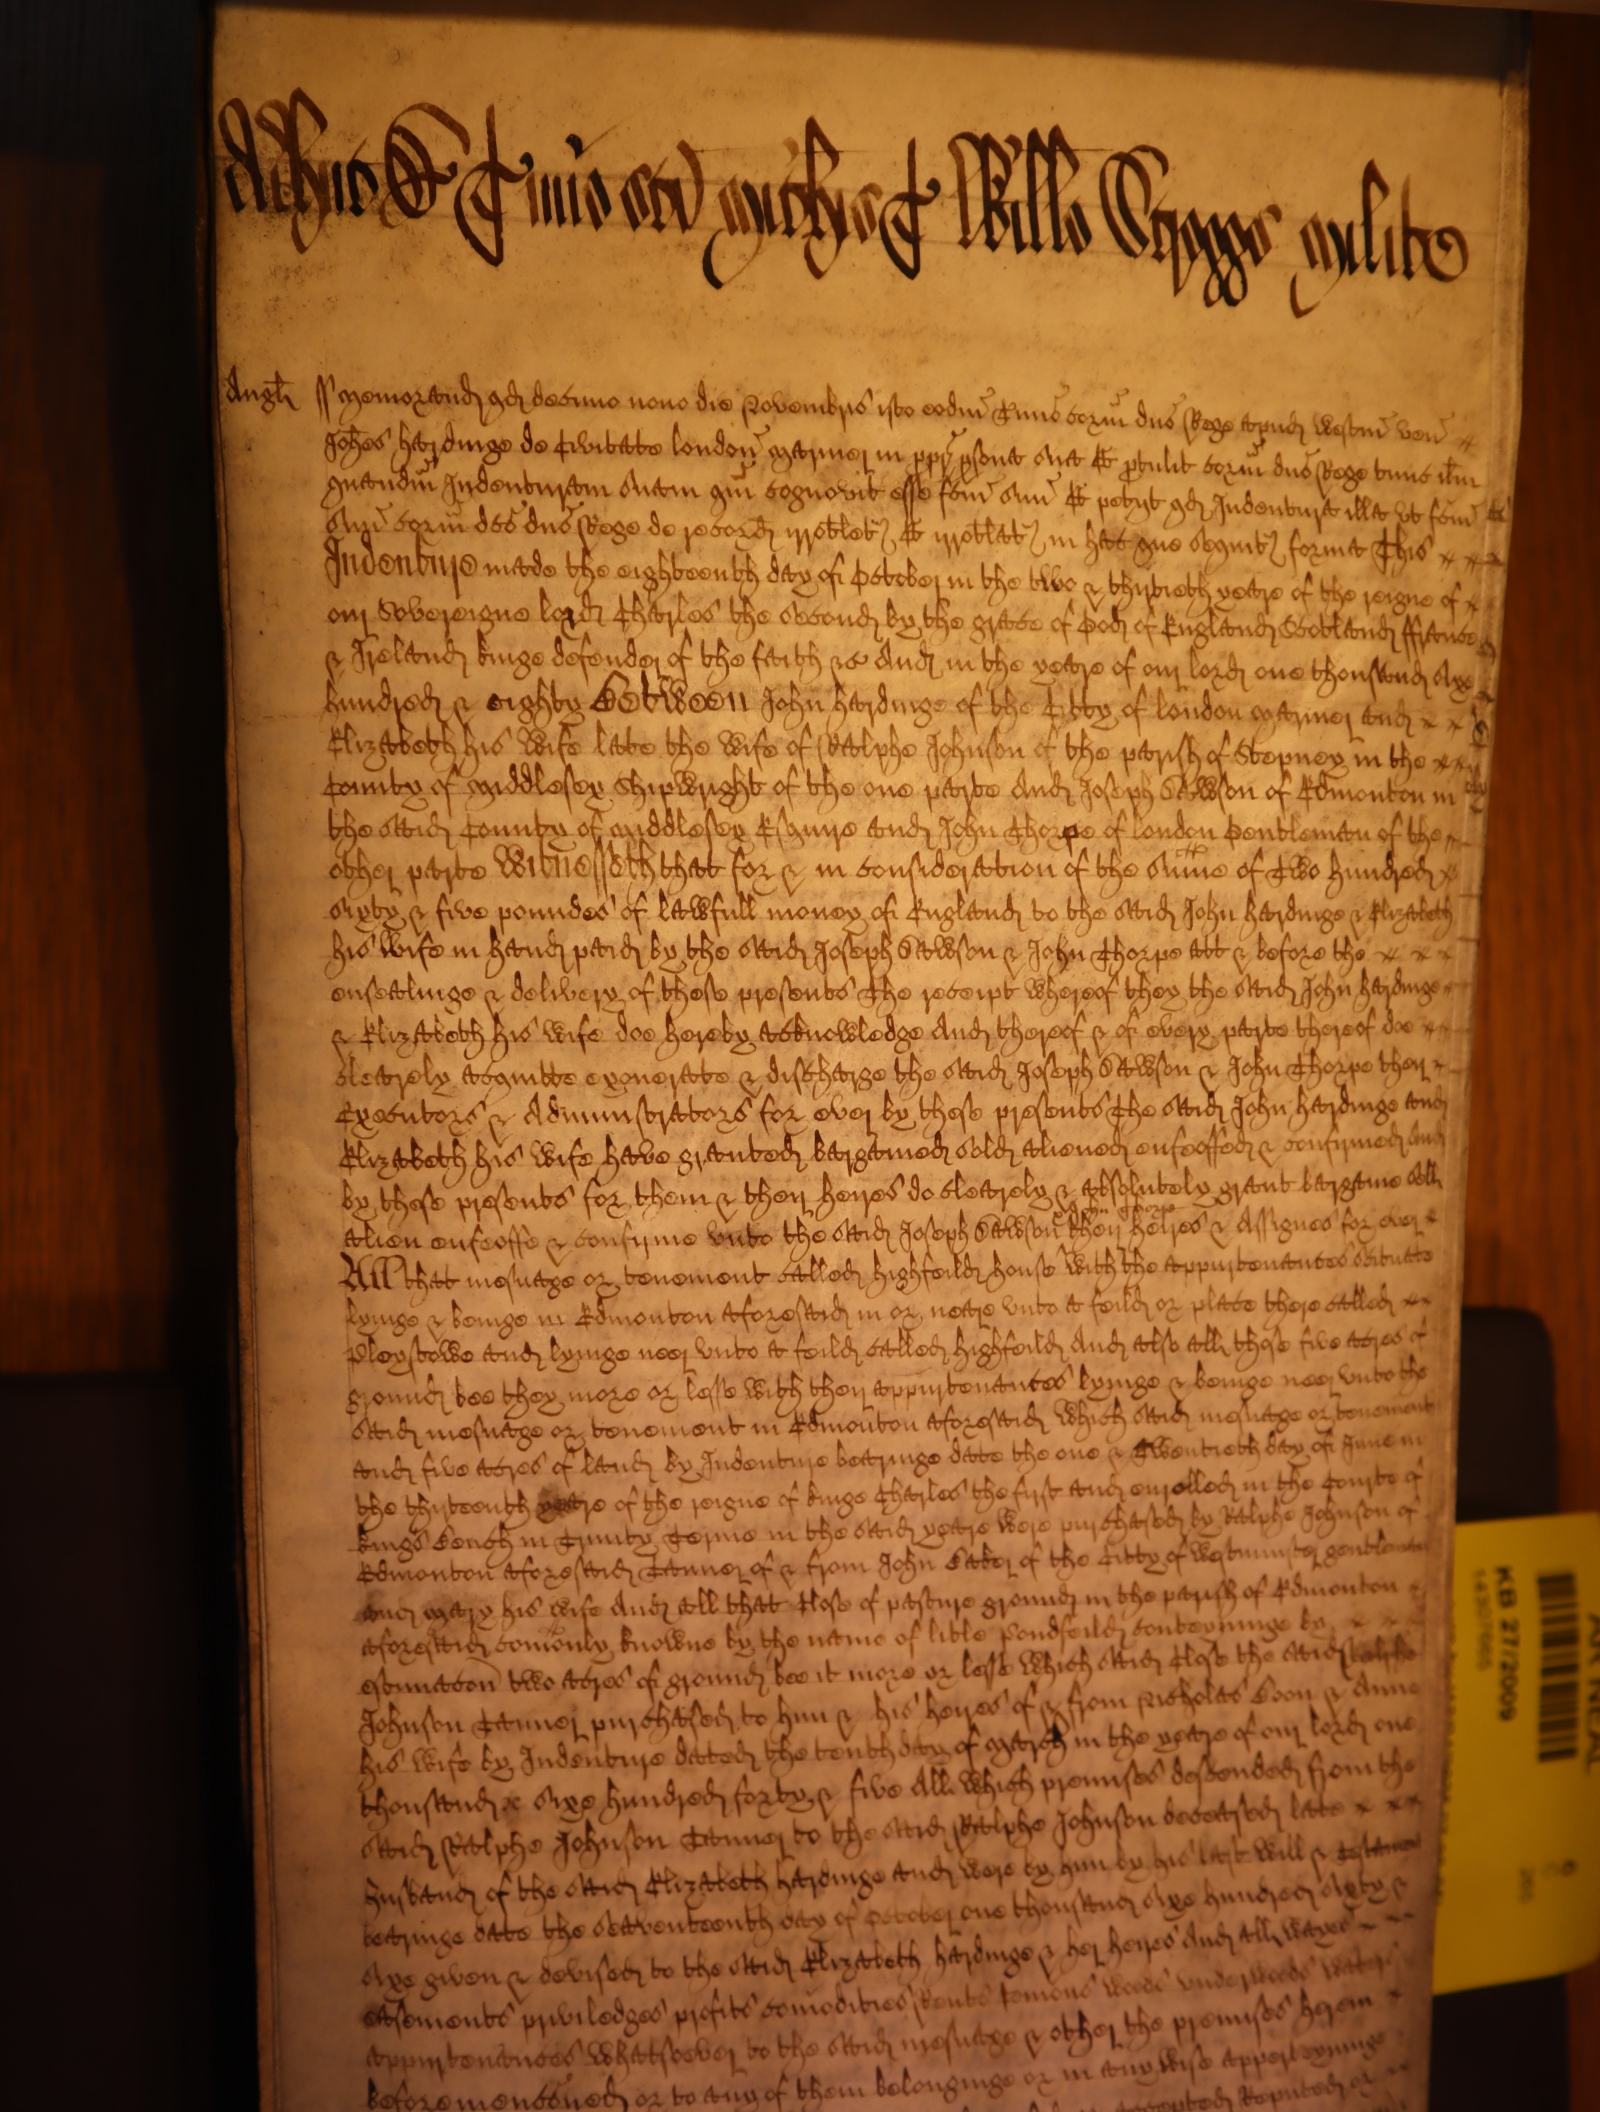 Adhuc de Termino sci Michis C Willo Scroggs milite
Angl ss Memorand qd decimo nono die Novembris isto eodm Termino coram dno Rege apud Westm ven
Johes Hardinge de Civitate London Mariner in ppr psona sua & ptulit coram dno Rege tunc ibm
quandam Indenturam suam quam cognovit esse fcm suu & petiit qd Indentura illa ut fcm
suu coram dco dno Rege de recordo irrotletr & irrotlatr in hac que sequitr forma This
Indenture made the eighteenth day of October in the two & thirtieth yeare of the reigne of
our Sovereigne lord Charles the second by the grace of God of England Scotland ffrance
& Ireland kinge defender of the faith &c And in the yeare of our lord one thousand sixe
hundred & eighty Between John Hardinge of the Citty of london Mariner and
Elizabeth his Wife late the Wife of Ralphe Johnson of the parish of Stepney in the
County of Middlesex Shipwright of the one parte And Joseph Dawson of Edmonton in
the said County of Middlesex Esquire and John Thorpe of london Gentleman of the
other parte Witnesseth that for & in consideration of the sume of Two hundred
sixty & five poundes of lawfull money of England to the said John Hardinge & Elizabeth
his Wife in hand paid by the said Joseph Dawson & John Thorpe att & before the
ensealinge & delivery of these presents The receipt whereof they the said John Hardinge
& Elizabeth his Wife doe hereby acknowledge And thereof & of every parte thereof doe
clearely acquitte exonerate & discharge the said Joseph Dawson & John Thorpe their
Executors & Administrators for ever by these presents The said John Hardinge and
Elizabeth his Wife have granted bargained sold aliened enfeoffed & confirmed And
by these presents for them & their heires do clearely & absolutely grant bargaine sell
& John Thorpe
alien enfeoffe & confirme unto the said Joseph Dawson their heires & Assignes for ever
All that mesuage or tenement called highfeild house With the appurtenances scituate
lyinge & beinge in Edmonton aforesaid in or neare unto a feild or place there called
Pleystowe and lyinge neer unto a feild called highfeild And also all those five acres of
ground bee they more or lesse with their appurtenances lyinge & beinge neer unto the
said mesuage or tenement in Edmonton aforesaid Which said mesuage or tenement
and five acres of land by Indenture bearinge date the one & Twentieth day of June in
the thirteenth yeare of the reigne of kinge Charles the first and enrolled in the Courte of
kings Bench in Trinity Terme in the said yeare were purchased by Ralphe Johnson of
Edmonton aforesaid Tanner of & from John Baker of the Citty of Westminster gentleman
and Mary his wife And all that Close of pasture ground in the parish of Edmonton
aforesaid comonly knowne by the name of litle Pondfeild conteyninge by
estimacon two acres of ground bee it more or lesse Which said Close the said Ralphe
Johnson Tanner purchased to him & his heires of & from Nicholas Boon & Anne
his Wife by Indenture dated the tenth day of March in the yeare of our lord one
thousand sixe hundred forty & five All Which premises descended from the
said Ralphe Johnson Tanner to the said Ralphe Johnson deceased late
husband of the said Elizabeth Hardinge and were by him by his last Will & Testament
bearinge date the seaventeenth day of October one thousand sixe hundred sixty &
sixe given & devised to the said Elizabeth Hardinge & her heires And all wayes
easements priviledges profits comodities Rents comons Woods underwoods Waters
appurtenances Whatsoever to the said mesuage & other the premises herein
before menconed or to any of them belonginge or in any wise apperteyninge
accepted Reputed or
KB 27/2009